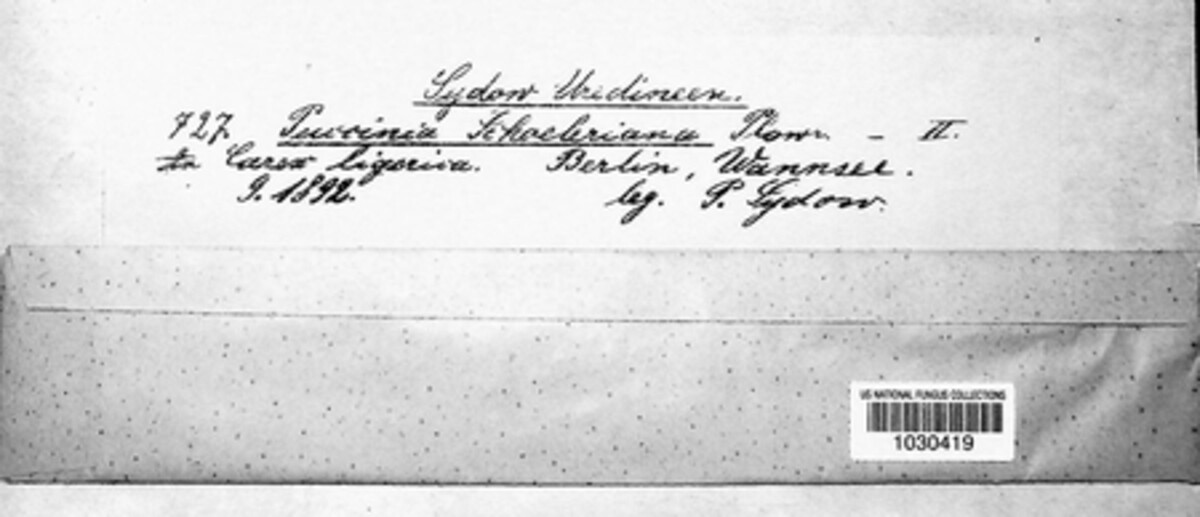 Sydow Uredineen.
727. Puccinia Schoeleriana Plowr. - II.
In Carex ligerica. Berlin, Wannsee.
9. 1892. leg. P. Sydow.
US NATIONAL FUNGUS COLLECTIONS
1030419